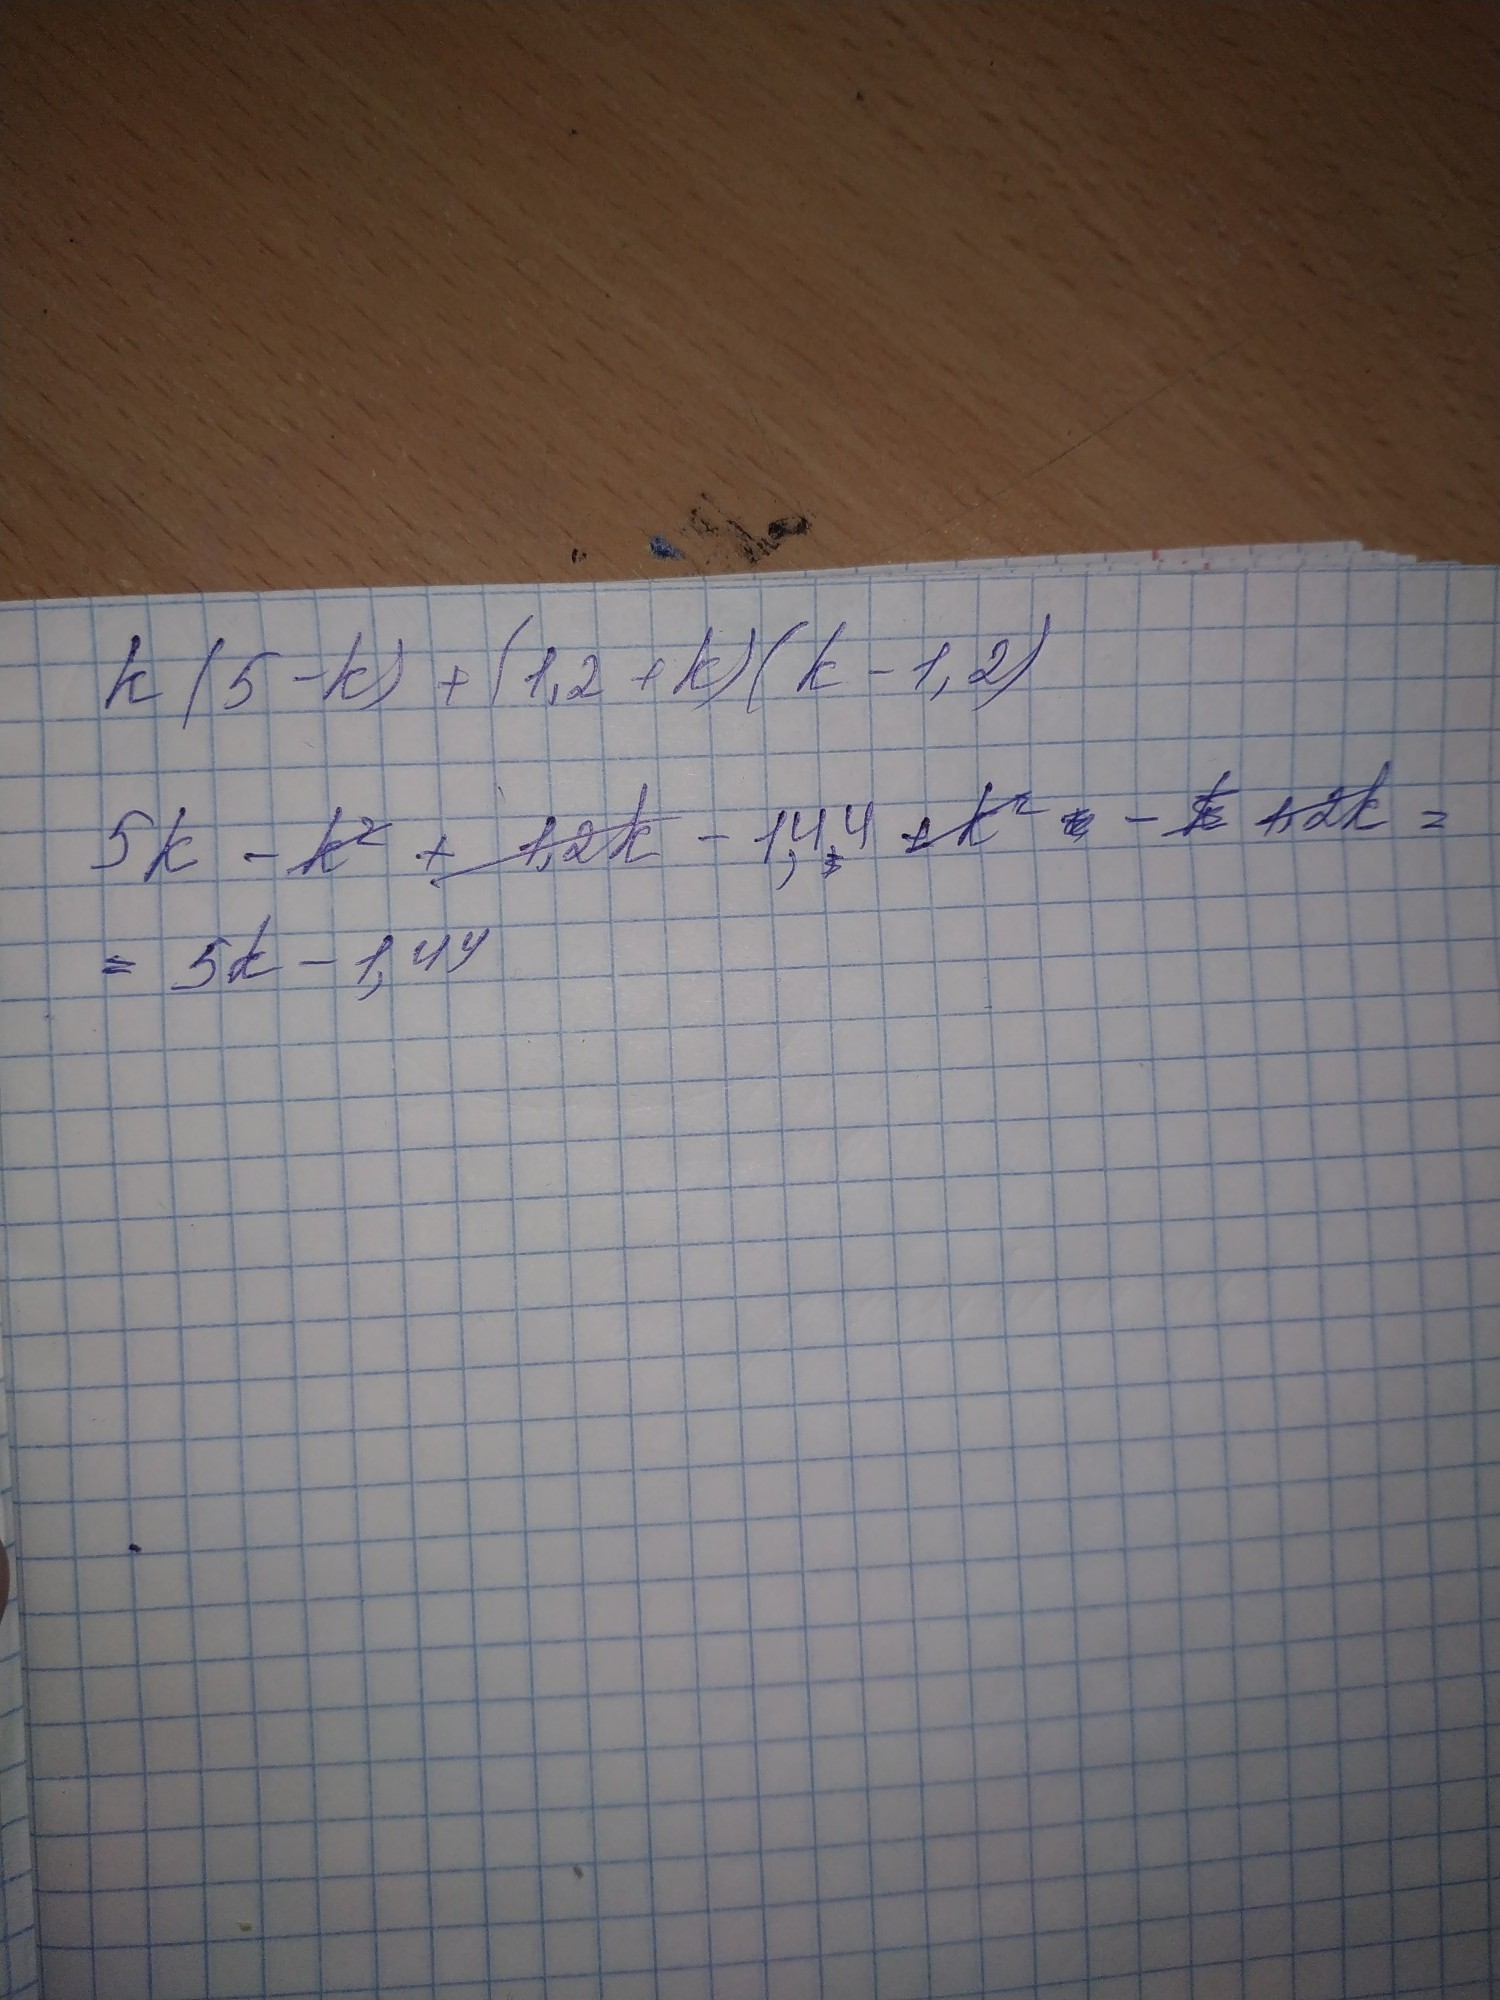 k(5-k)+(1,2+k)(k-1,2)
5k-k²+1,2k-1,44+k²-1,2k=
=5k-1,44